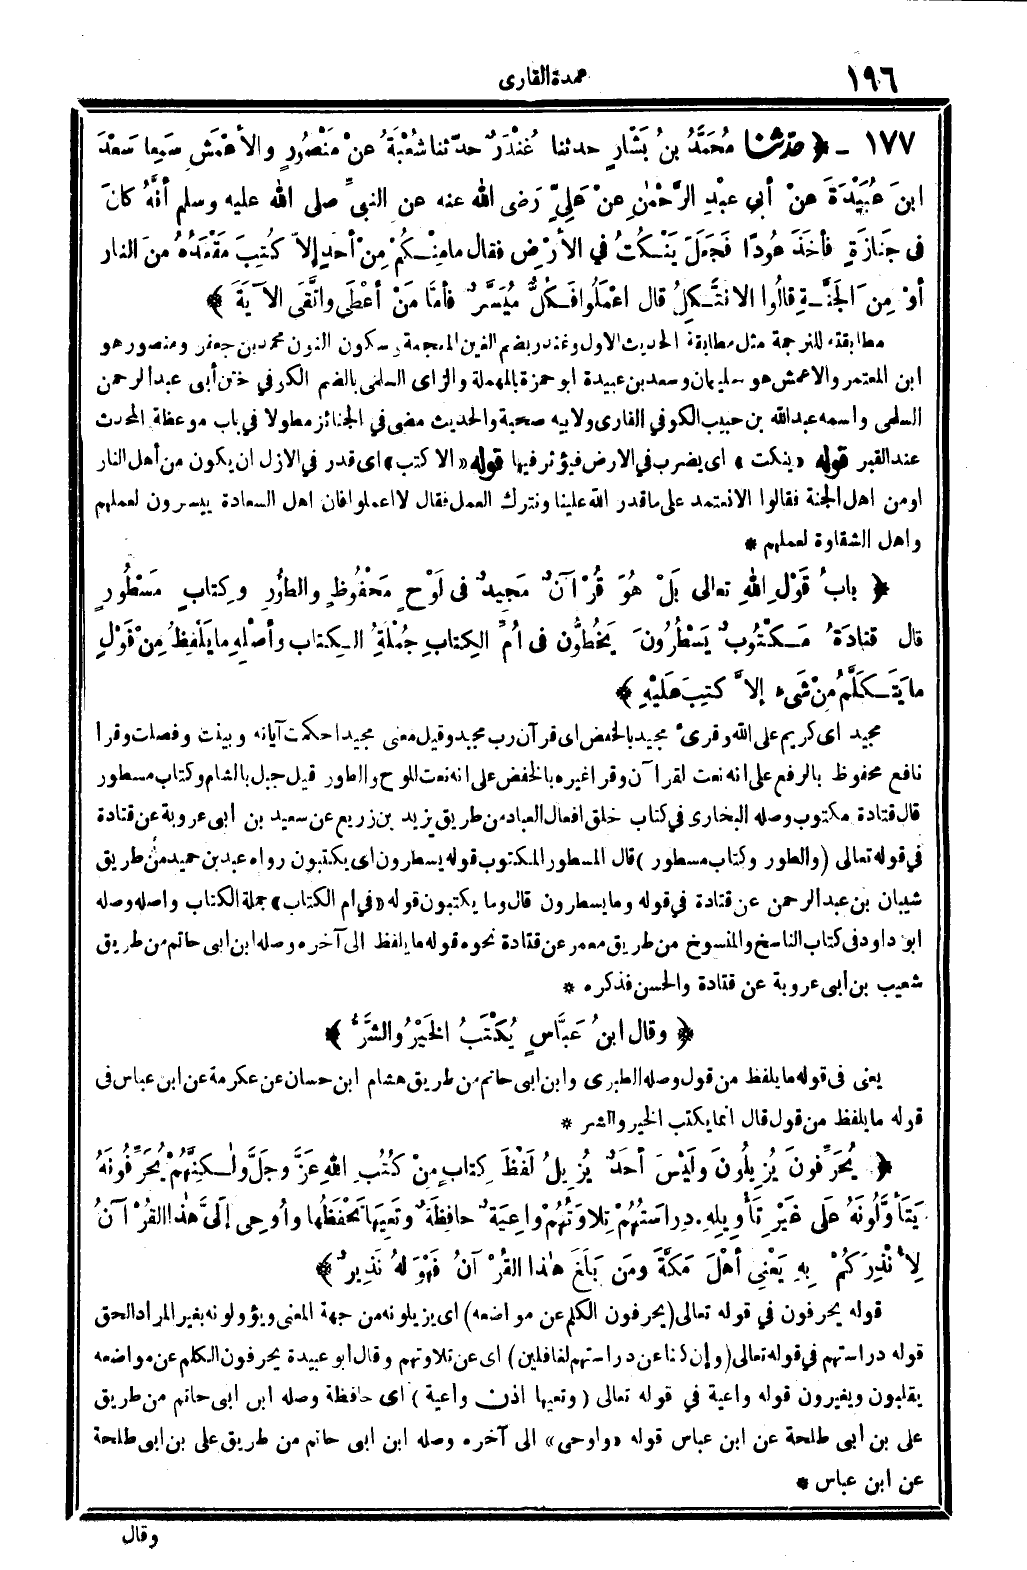 ١٩٦
عمدة القارى
١٧٧ - ﴿ حدثنا مُحَمَّدُ بنُ بَشَّارٍ حدثنا غُنْدَرٌ حدّثنا شُعْبَةُ عنْ مَنْصُورٍ والأعْمَشِ سَمِعا سَعْدَ
ابنَ عُبَيْدَةَ عنْ أبي عبْدِ الرَّحْمٰنِ عنْ عَلِيٍّ رَضى الله عنه عن النبيِّ صلى الله عليه وسلم أنَّهُ كانَ
فى جَنازَةٍ فأخَذَ عُودًا فَجَعَلَ يَنْكُتُ في الأرْضِ فقال مامِنْكُمْ مِنْ أحَدٍ إلاّ كُتِبَ مَقْعَدُهُ منَ النار
أوْ مِنَ الجَنَّةِ قالُوا الا نَتَّكِلُ قال اعْمَلُوا فَكُلٌّ مُيَسَّرٌ فأمَّا مَنْ أعْطَى واتَّقَى الآيَةَ ﴾
مطابقته للترجمة مثل مطابقة الحديث الاول وغندر بضم الغين المعجمة وسكون النون محمد بن جعفر ومنصور هو
ابن المعتمر والاعمش هو سليمان وسعد بن عبيدة ابو حمزة بالمهملة والزاى السلمى بالضم الكوفي ختن أبى عبد الرحمن
السلمى واسمه عبد الله بن حبيب الكوفي القارى ولابيه صحبة والحديث مضى في الجنائز مطولا في باب موعظة المحدث
عند القبر قوله «ينكت» اى يضرب في الارض فيؤثر فيها قوله «الا كتب» اى قدر في الازل ان يكون من أهل النار
اومن اهل الجنة فقالوا الا نعتمد على ما قدر الله علينا ونترك العمل فقال لا اعملوا فان اهل السعادة ييسرون لعملهم
واهل الشقاوة لعملهم *
﴿ بابُ قَوْلِ اللهِ تعالى بَلْ هُوَ قُرْآنٌ مَجِيدٌ فى لَوْحٍ مَحْفُوظٍ والطُّورِ وكِتابٍ مَسْطُورٍ
قال قتادَةُ مَكْتُوبٌ يَسْطُرُونَ يَخُطُّونَ فى أُمِّ الكِتابِ جُمْلَةِ الكِتاب وأصْلِهِ ما يَلْفِظُ مِنْ قَوْلٍ
ما يَتَكَلَّمُ مِنْ شَىءٍ إلاَّ كتِبَ عَلَيْهِ ﴾
مجيد اى كريم على الله وقرىء مجيد بالخفض اى قرآن رب مجيد وقيل معنى مجيد احكمت آياته وبينت وفصلت وقرأ
نافع محفوظ بالرفع على انه نعت لقرآن وقرأ غيره بالخفض على انه نعت للوح والطور قيل جبل بالشام وكتاب مسطور
قال قتادة مكتوب وصله البخارى في كتاب خلق افعال العباد من طريق يزيد بن زريع عن سعيد بن ابى عروبة عن قتادة
في قوله تعالى (والطور وكتاب مسطور) قال المسطور المكتوب قوله يسطرون اى يكتبون رواه عبد بن حميد من طريق
شيبان بن عبد الرحمن عن قتادة في قوله وما يسطرون قال وما يكتبون قوله «في ام الكتاب» جملة الكتاب واصله وصله
ابو داود فى كتاب الناسخ والمنسوخ من طريق معمر عن قتادة نحوه قوله ما يلفظ الى آخره وصله ابن ابى حاتم من طريق
شعيب بن أبى عروبة عن قتادة والحسن فذكره *
﴿ وقال ابنُ عَبَّاسٍ يُكْتَبُ الخَيْرُ والشَّرُّ ﴾
يعنى فى قوله ما يلفظ من قول وصله الطبرى وابن ابى حاتم من طريق هشام ابن حسان عن عكرمة عن ابن عباس فى
قوله ما يلفظ من قول قال انما يكتب الخير والشر *
﴿ يُحَرِّفُونَ يُزِيلُونَ ولَيْسَ أحَدٌ يُزِيلُ لَفْظَ كِتابٍ مِنْ كُتُبِ اللهِ عَزَّ وجَلَّ ولٰكِنَّهُمْ يُحَرِّفُونَهُ
يَتَأوَّلُونَهُ عَلى غَيْرِ تَأْوِيلِهِ. دِراسَتُهُمْ تِلاوَتُهُمْ واعِيَةٌ حافِظَةٌ وتَعِيَها تَحْفَظُها وأُوحِى إلَىَّ هٰذا القُرْآنُ
لِأُنْذِرَكُمْ بِهِ يَعْنِى أهْلَ مَكَّةَ ومَن بَلَغَ هٰذا القُرْآنُ فَهْوَ لهُ نَذِيرٌ ﴾
قوله يحرفون في قوله تعالى (يحرفون الكلم عن مواضعه) اى يزيلونه من جهة المعنى ويؤولونه بغير المراد الحق
قوله دراستهم في قوله تعالى (وإن كنا عن دراستهم لغافلين) اى عن تلاوتهم وقال ابو عبيدة يحرفون الكلم عن مواضعه
يقلبون ويغيرون قوله واعية في قوله تعالى (وتعيها اذن واعية) اى حافظة وصله ابن ابى حاتم من طريق
على بن أبى طلحة عن ابن عباس قوله «واوحى» الى آخره وصله ابن ابى حاتم من طريق على بن ابى طلحة
عن ابن عباس *
وقال